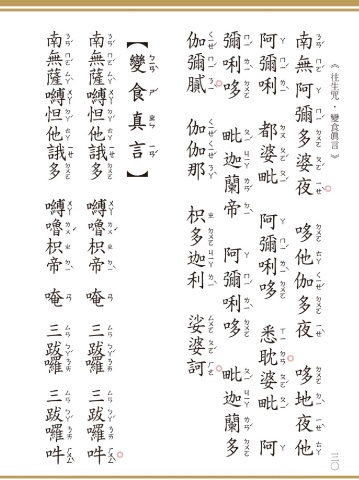 《往生咒·變食真言》
南無阿彌多婆夜 哆他伽多夜 哆地夜他
阿彌唎 都婆毗 阿彌唎哆 悉耽婆毗 阿
彌唎哆 毗迦蘭帝 阿彌唎哆 毗迦蘭多
伽彌膩 伽伽那 枳多迦利 娑婆訶
【變食真言】
南無薩嚩怛他誐多 嚩嚕枳帝 唵 三跋囉 三跋囉吽
南無薩嚩怛他誐多 嚩嚕枳帝 唵 三跋囉 三跋囉吽
三〇